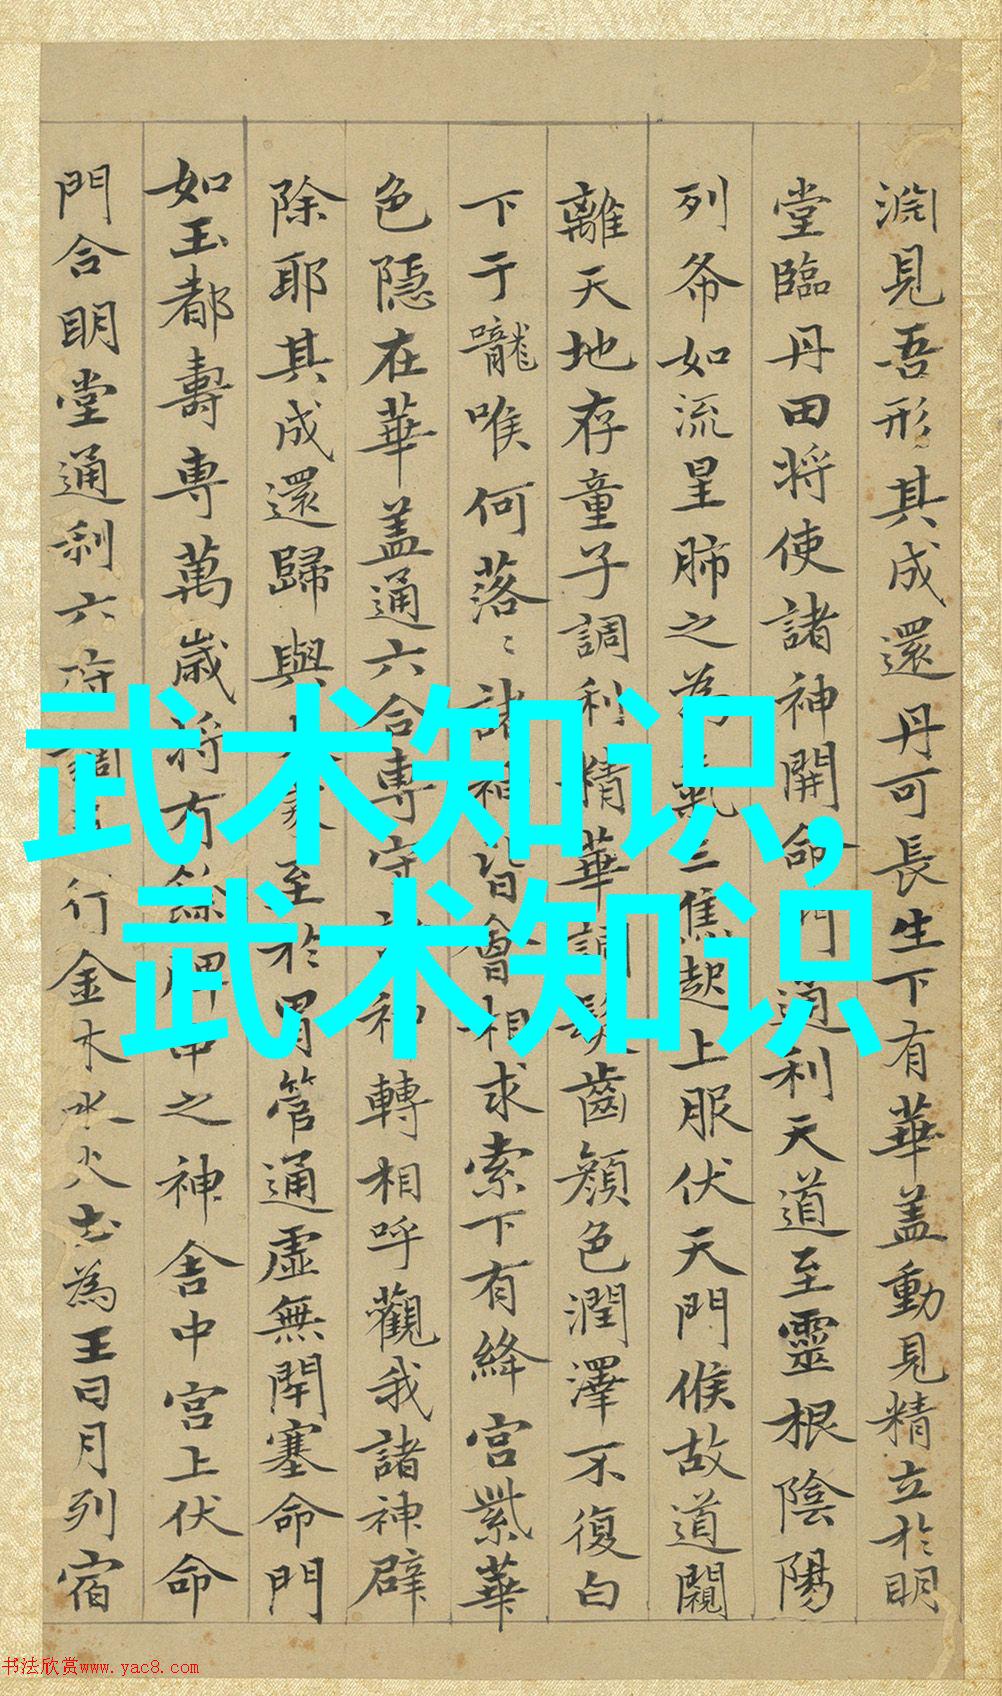 淵見吾形其成還丹可長生下有華盖動見精立於明
堂臨丹田将使諸神開命門通利天道至靈根陰陽
列布如流星肺之為氣三焦起上服伏天門候故道闚
離天地存童子調利精華調髮齒顏色潤澤不復白
下于嚨喉何落〻諸神皆會相求索下有絳宮紫華
色隱在華盖通六合專守諸神轉相呼觀我諸神辟
除耶其成還歸與大家至於胃管通虛無閉塞命門
如玉都壽專萬歲将有餘脾中之神舍中宮上伏命
門合明堂通利六府調五行金木水火土為王日月列宿
武术知识,
武术知识
书法欣赏www.yac8.com